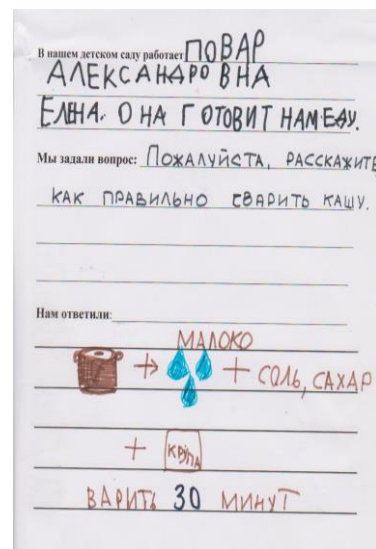 В нашем детском саду работает ПОВАР
АЛЕКСАНДРОВНА
ЕЛЕНА. ОНА ГОТОВИТ НАМ ЕДУ.
Мы задали вопрос: ПОЖАЛУЙСТА, РАССКАЖИТЕ
КАК ПРАВИЛЬНО СВАРИТЬ КАШУ.
Нам ответили:
МАЛОКО
+ + СОЛЬ, САХАР
+ КРУПА
ВАРИТЬ 30 МИНУТ